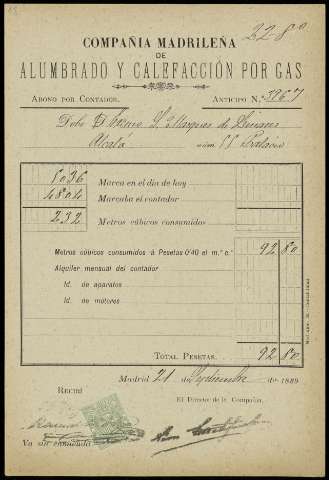 22-80
COMPAÑIA MADRILEÑA
DE
ALUMBRADO Y CALEFACCIÓN POR GAS
ABONO POR CONTADOR. ANTICIPO N.º 3967
Debe El Excmo Sr Marques de Linares
Alcalá núm 55 Palacio
Marca en el dia de hoy
4804 Marcaba el contador
232 Metros cúbicos consumidos
Metros cúbicos consumidos á Pesetas 0'40 el m.º c.º 92 80
Alquiler mensual del contador
Id. de aparatos
Id. de motores
TOTAL PESETAS. 92 80
Madrid 21 de Septiembre de 1889
RECIBÍ El Director de la Compañía,
Va sin enmienda